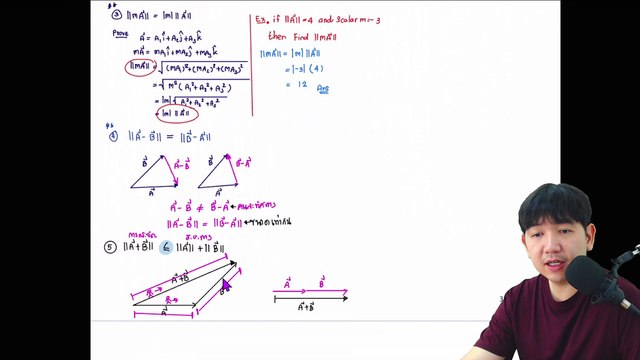 ③ ||mA⃗|| = |m| ||A⃗||
Prove A⃗ = A₁î + A₂ĵ + A₃k̂
mA⃗ = mA₁î + mA₂ĵ + mA₃k̂
||mA⃗|| = √((mA₁)² + (mA₂)² + (mA₃)²)
= √(m²(A₁² + A₂² + A₃²))
= |m| √(A₁² + A₂² + A₃²)
= |m| ||A⃗||
Ex. if ||A⃗|| = 4 and scalar m = -3
then Find ||mA⃗||
||mA⃗|| = |m| ||A⃗||
= |-3| (4)
= 12 Ans
④ ||A⃗ - B⃗|| = ||B⃗ - A⃗||
B⃗ A⃗-B⃗ B⃗ B⃗-A⃗
A⃗ A⃗
A⃗ - B⃗ ≠ B⃗ - A⃗
||A⃗ - B⃗|| = ||B⃗ - A⃗|| ← ขนาดเท่ากัน
⑤ ||A⃗ + B⃗|| ≤ ||A⃗|| + ||B⃗||
A⃗+B⃗
B⃗
A⃗
A⃗ B⃗
A⃗+B⃗